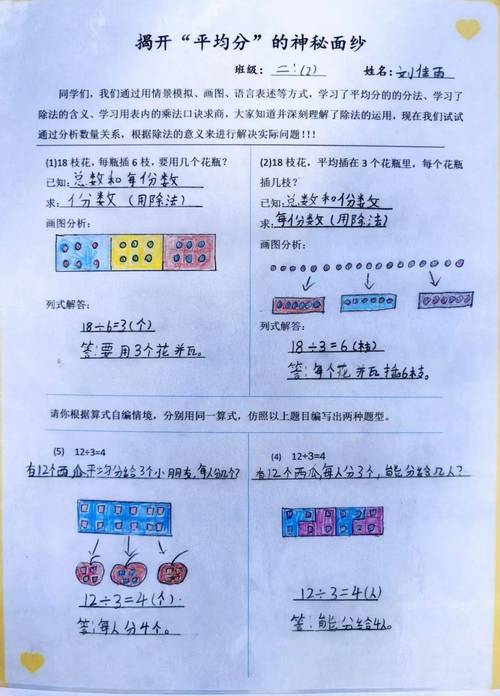 揭开“平均分”的神秘面纱
班级: 二(2) 姓名: 刘佳雨
同学们，我们通过用情景模拟、画图、语言表述等方式，学习了平均分的分法、学习了
除法的含义、学习用表内的乘法口诀求商，大家知道并深刻理解了除法的运用，现在我们试试
通过分析数量关系，根据除法的意义来进行解决实际问题!!!
(1)18 枝花，每瓶插 6 枝，要用几个花瓶？
已知: 总数和每份数
求: 份数（用除法）
画图分析:
列式解答:
18÷6=3(个)
答:要用3个花瓶。
(2)18 枝花，平均插在 3 个花瓶里，每个花瓶
插几枝？
已知: 总数和份数
求: 每份数（用除法）
画图分析:
列式解答:
18÷3=6(枝)
答:每个花瓶插6枝。
请你根据算式自编情境，分别用同一算式，仿照以上题目编写出两种题型。
(5) 12÷3=4
有12个西瓜平均分给3个小朋友,每人分几个?
12÷3=4(个)
答:每人分4个。
(4) 12÷3=4
有12个西瓜,每人分3个,能分给几人?
12÷3=4(人)
答:能分给4人。